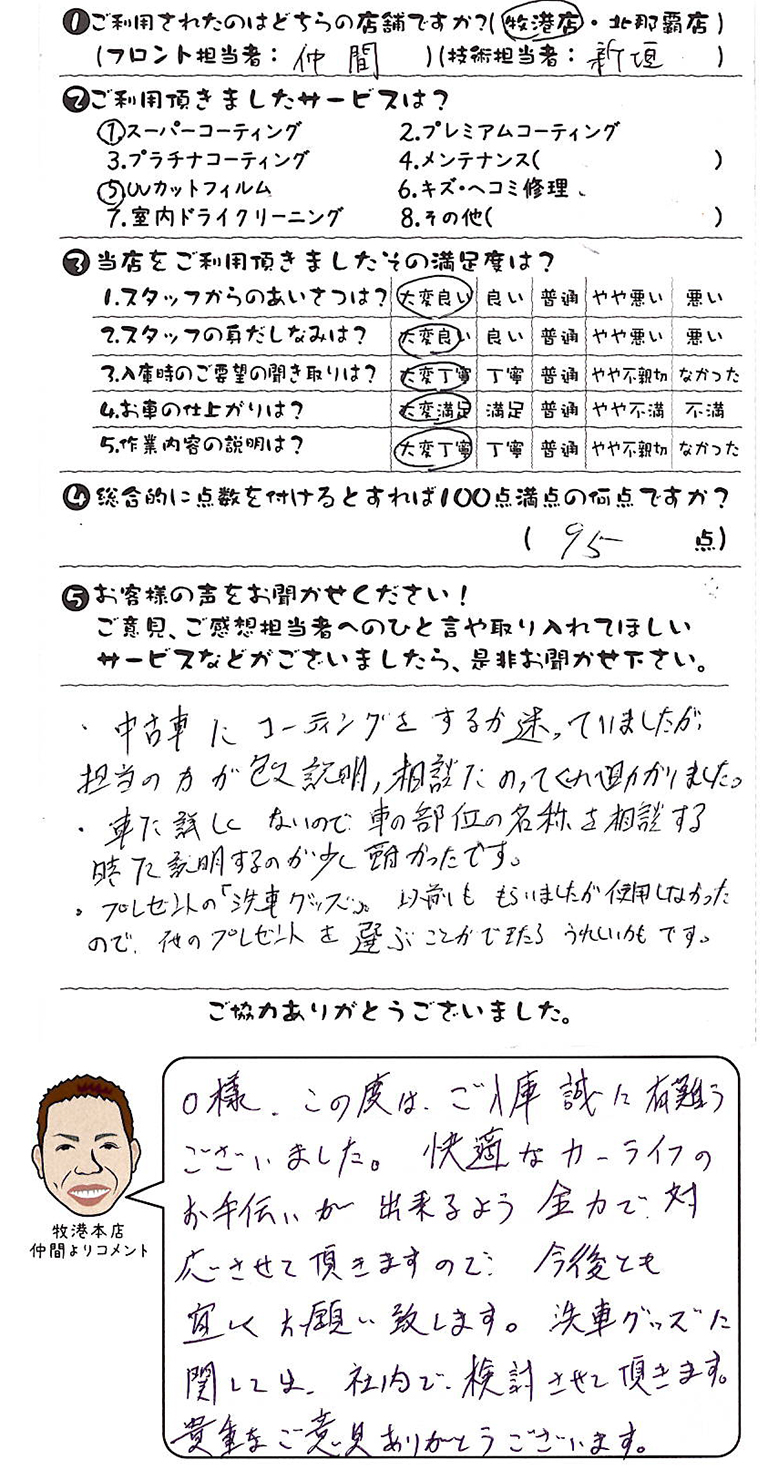 ❶ご利用されたのはどちらの店舗ですか?(牧港店・北那覇店)
(フロント担当者: 仲間 )(技術担当者: 新垣 )
❷ご利用頂きましたサービスは?
1.スーパーコーティング 2.プレミアムコーティング
3.プラチナコーティング 4.メンテナンス( )
5.UVカットフィルム 6.キズ・ヘコミ修理
7.室内ドライクリーニング 8.その他( )
❸当店をご利用頂きましたその満足度は?
1.スタッフからのあいさつは? 大変良い 良い 普通 やや悪い 悪い
2.スタッフの身だしなみは? 大変良い 良い 普通 やや悪い 悪い
3.入庫時のご要望の聞き取りは? 大変丁寧 丁寧 普通 やや不親切 なかった
4.お車の仕上がりは? 大変満足 満足 普通 やや不満 不満
5.作業内容の説明は? 大変丁寧 丁寧 普通 やや不親切 なかった
❹総合的に点数を付けるとすれば100点満点の何点ですか?
( 95 点)
❺お客様の声をお聞かせください!
ご意見、ご感想担当者へのひと言や取り入れてほしい
サービスなどがございましたら、是非お聞かせ下さい。
・中古車にコーティングをするか迷っていましたが、
担当の方が 説明,相談にのってくれて助かりました。
・車に詳しくないので車の部位の名称を相談する
時に説明するのが少し難かったです。
・プレゼントの「洗車グッズ」。以前ももらいましたが使用しなかった
ので、他のプレゼントを選ぶことができたらうれしいかもです。
ご協力ありがとうございました。
O様、この度は、ご入庫誠に有難う
ございました。快適なカーライフの
お手伝いが出来るよう全力で対
応させて頂きますので、今後とも
宜しくお願い致します。洗車グッズに
関しては、社内で検討させて頂きます。
貴重なご意見ありがとうございます。
牧港本店
仲間よりコメント